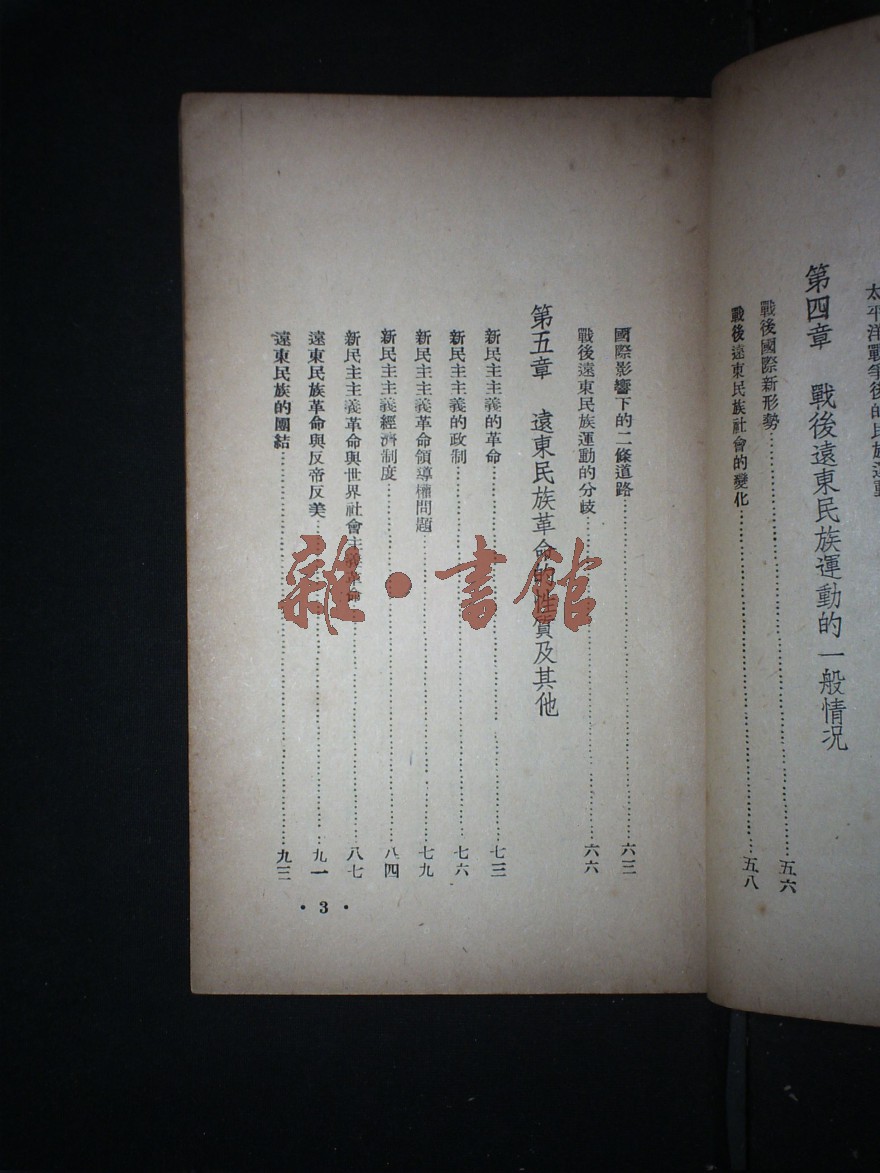 太平洋戰爭後的民族運動
第四章　戰後遠東民族運動的一般情況
戰後國際新形勢…………五六
戰後遠東民族社會的變化…………五八
國際影響下的二條道路…………六三
戰後遠東民族運動的分歧…………六六
第五章　遠東民族革命的性質及其他
新民主主義的革命…………七三
新民主主義的政制…………七六
新民主主義革命領導權問題…………七九
新民主主義經濟制度…………八四
新民主主義革命與世界社會主義革命…………八七
遠東民族革命與反帝反美…………九一
遠東民族的團結…………九三
• 3 •
雜•書館